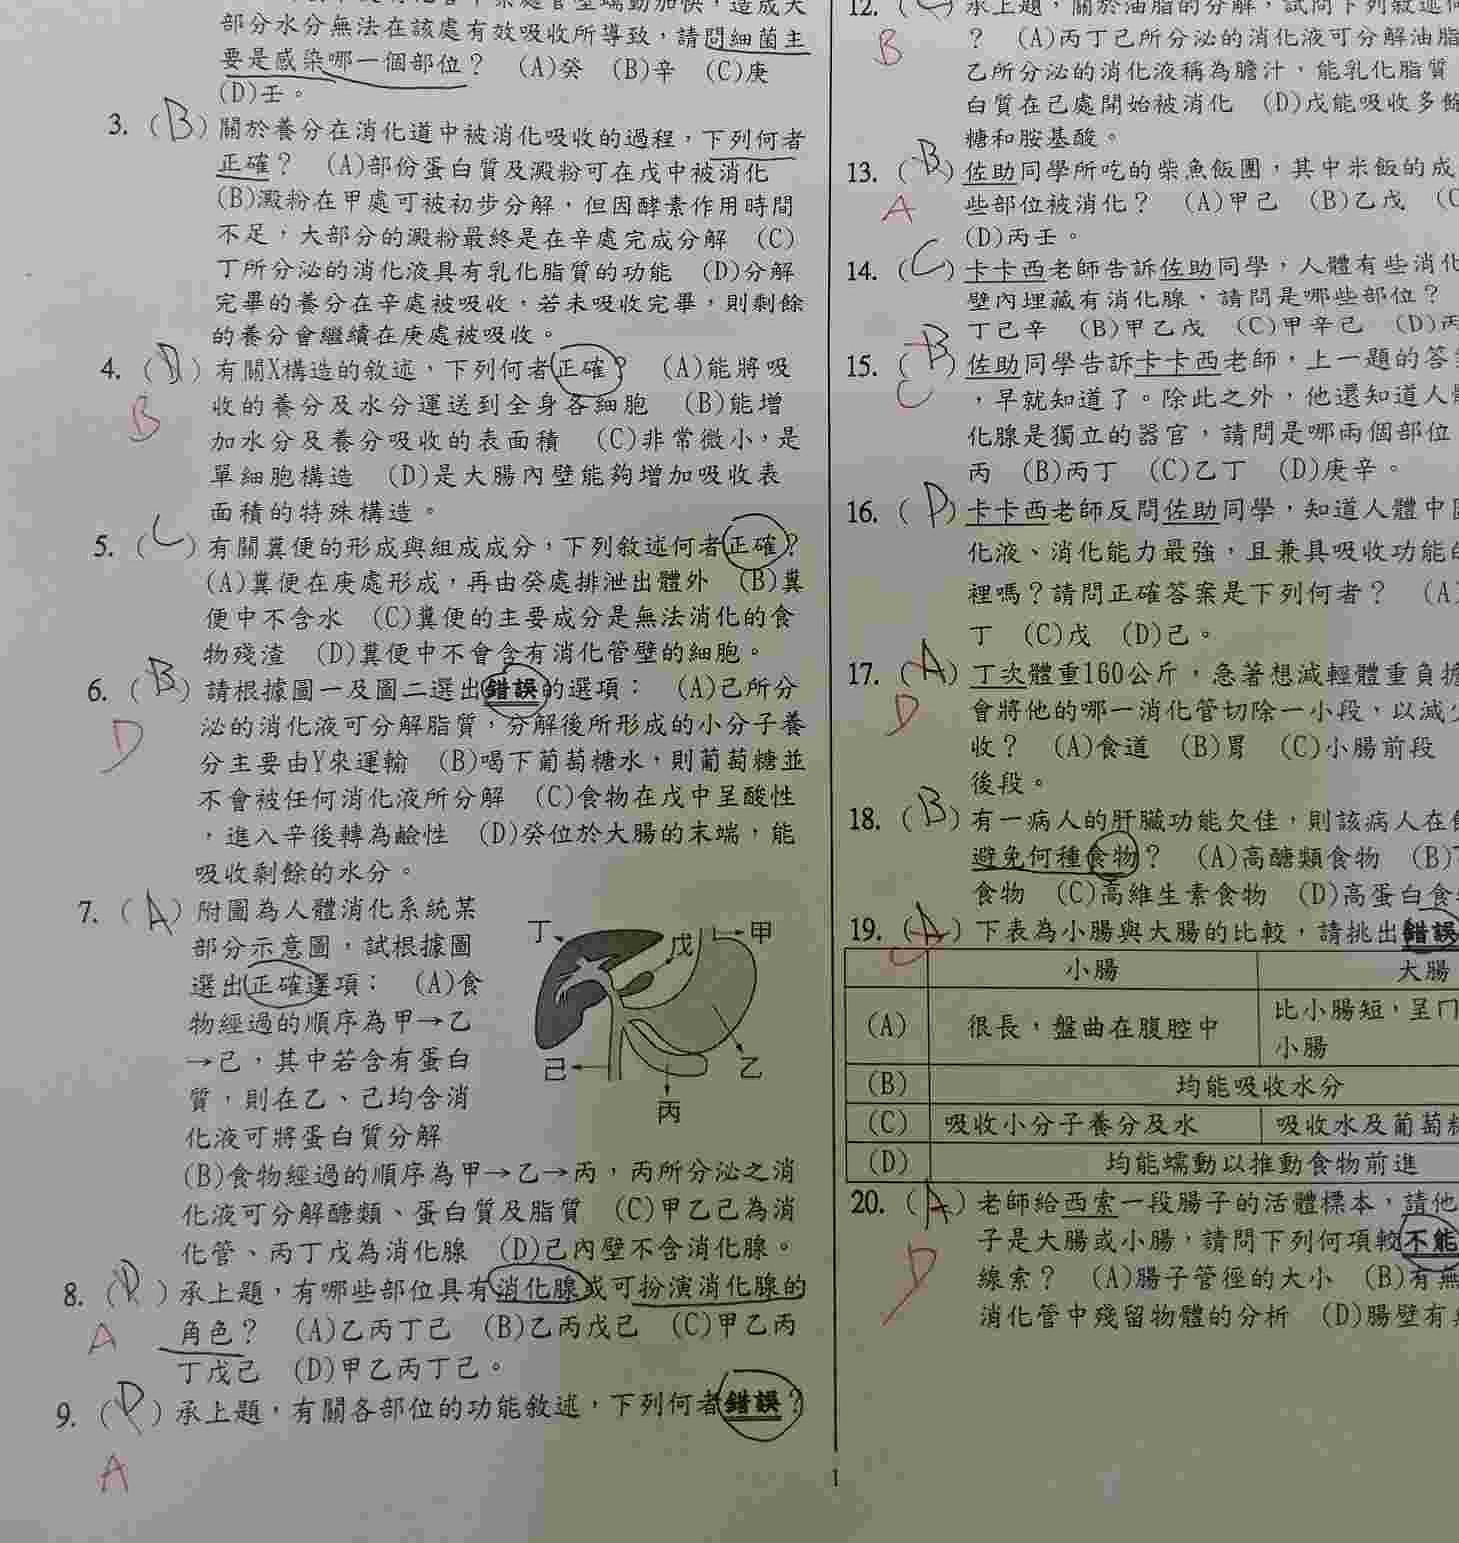 部分水分無法在該處有效吸收所導致，請問細菌主
要是感染哪一個部位？ (A)癸 (B)辛 (C)庚
(D)壬。
3. (B)關於養分在消化道中被消化吸收的過程，下列何者
正確？ (A)部份蛋白質及澱粉可在戊中被消化
(B)澱粉在甲處可被初步分解，但因酵素作用時間
不足，大部分的澱粉最終是在辛處完成分解 (C)
丁所分泌的消化液具有乳化脂質的功能 (D)分解
完畢的養分在辛處被吸收，若未吸收完畢，則剩餘
的養分會繼續在庚處被吸收。
4. (D)有關X構造的敘述，下列何者正確？ (A)能將吸
B
收的養分及水分運送到全身各細胞 (B)能增
加水分及養分吸收的表面積 (C)非常微小，是
單細胞構造 (D)是大腸內壁能夠增加吸收表
面積的特殊構造。
5. (C)有關糞便的形成與組成成分，下列敘述何者正確？
(A)糞便在庚處形成，再由癸處排泄出體外 (B)糞
便中不含水 (C)糞便的主要成分是無法消化的食
物殘渣 (D)糞便中不會含有消化管壁的細胞。
6. (B)請根據圖一及圖二選出錯誤的選項： (A)己所分
D
泌的消化液可分解脂質，分解後所形成的小分子養
分主要由Y來運輸 (B)喝下葡萄糖水，則葡萄糖並
不會被任何消化液所分解 (C)食物在戊中呈酸性
，進入辛後轉為鹼性 (D)癸位於大腸的末端，能
吸收剩餘的水分。
7. (A)附圖為人體消化系統某
部分示意圖，試根據圖
選出正確選項： (A)食
物經過的順序為甲→乙
→己，其中若含有蛋白
質，則在乙、己均含消
化液可將蛋白質分解
丁
戊
甲
己
乙
丙
(B)食物經過的順序為甲→乙→丙，丙所分泌之消
化液可分解醣類、蛋白質及脂質 (C)甲乙己為消
化管、丙丁戊為消化腺 (D)己內壁不含消化腺。
8. (D)承上題，有哪些部位具有消化腺或可扮演消化腺的
A
角色？ (A)乙丙丁己 (B)乙丙戊己 (C)甲乙丙
丁戊己 (D)甲乙丙丁己。
9. (D)承上題，有關各部位的功能敘述，下列何者錯誤？
A
12. (C)承上題，關於油脂的分解，試問下列敘述
B
？ (A)丙丁己所分泌的消化液可分解油脂
乙所分泌的消化液稱為膽汁，能乳化脂質
白質在己處開始被消化 (D)戊能吸收多餘
糖和胺基酸。
13. (B)佐助同學所吃的柴魚飯團，其中米飯的成
A
些部位被消化？ (A)甲己 (B)乙戊
(D)丙壬。
14. (C)卡卡西老師告訴佐助同學，人體有些消化
壁內埋藏有消化腺，請問是哪些部位？
丁己辛 (B)甲乙戊 (C)甲辛己 (D)丙
15. (B)佐助同學告訴卡卡西老師，上一題的答
C
，早就知道了。除此之外，他還知道人
化腺是獨立的器官，請問是哪兩個部位
丙 (B)丙丁 (C)乙丁 (D)庚辛。
16. (D)卡卡西老師反問佐助同學，知道人體中
化液、消化能力最強，且兼具吸收功能
裡嗎？請問正確答案是下列何者？ (A)
丁 (C)戊 (D)己。
17. (A)丁次體重160公斤，急著想減輕體重負擔
D
會將他的哪一消化管切除一小段，以減
收？ (A)食道 (B)胃 (C)小腸前段
後段。
18. (B)有一病人的肝臟功能欠佳，則該病人在
避免何種食物？ (A)高醣類食物 (B)
食物 (C)高維生素食物 (D)高蛋白食
19. (A)下表為小腸與大腸的比較，請挑出錯誤
C
小腸 大腸
(A) 很長，盤曲在腹腔中 比小腸短，呈ㄇ
小腸
(B) 均能吸收水分
(C) 吸收小分子養分及水 吸收水及葡萄糖
(D) 均能蠕動以推動食物前進
20. (A)老師給西索一段腸子的活體標本，請他
D
子是大腸或小腸，請問下列何項較不能
線索？ (A)腸子管徑的大小 (B)有無
消化管中殘留物體的分析 (D)腸壁有
1